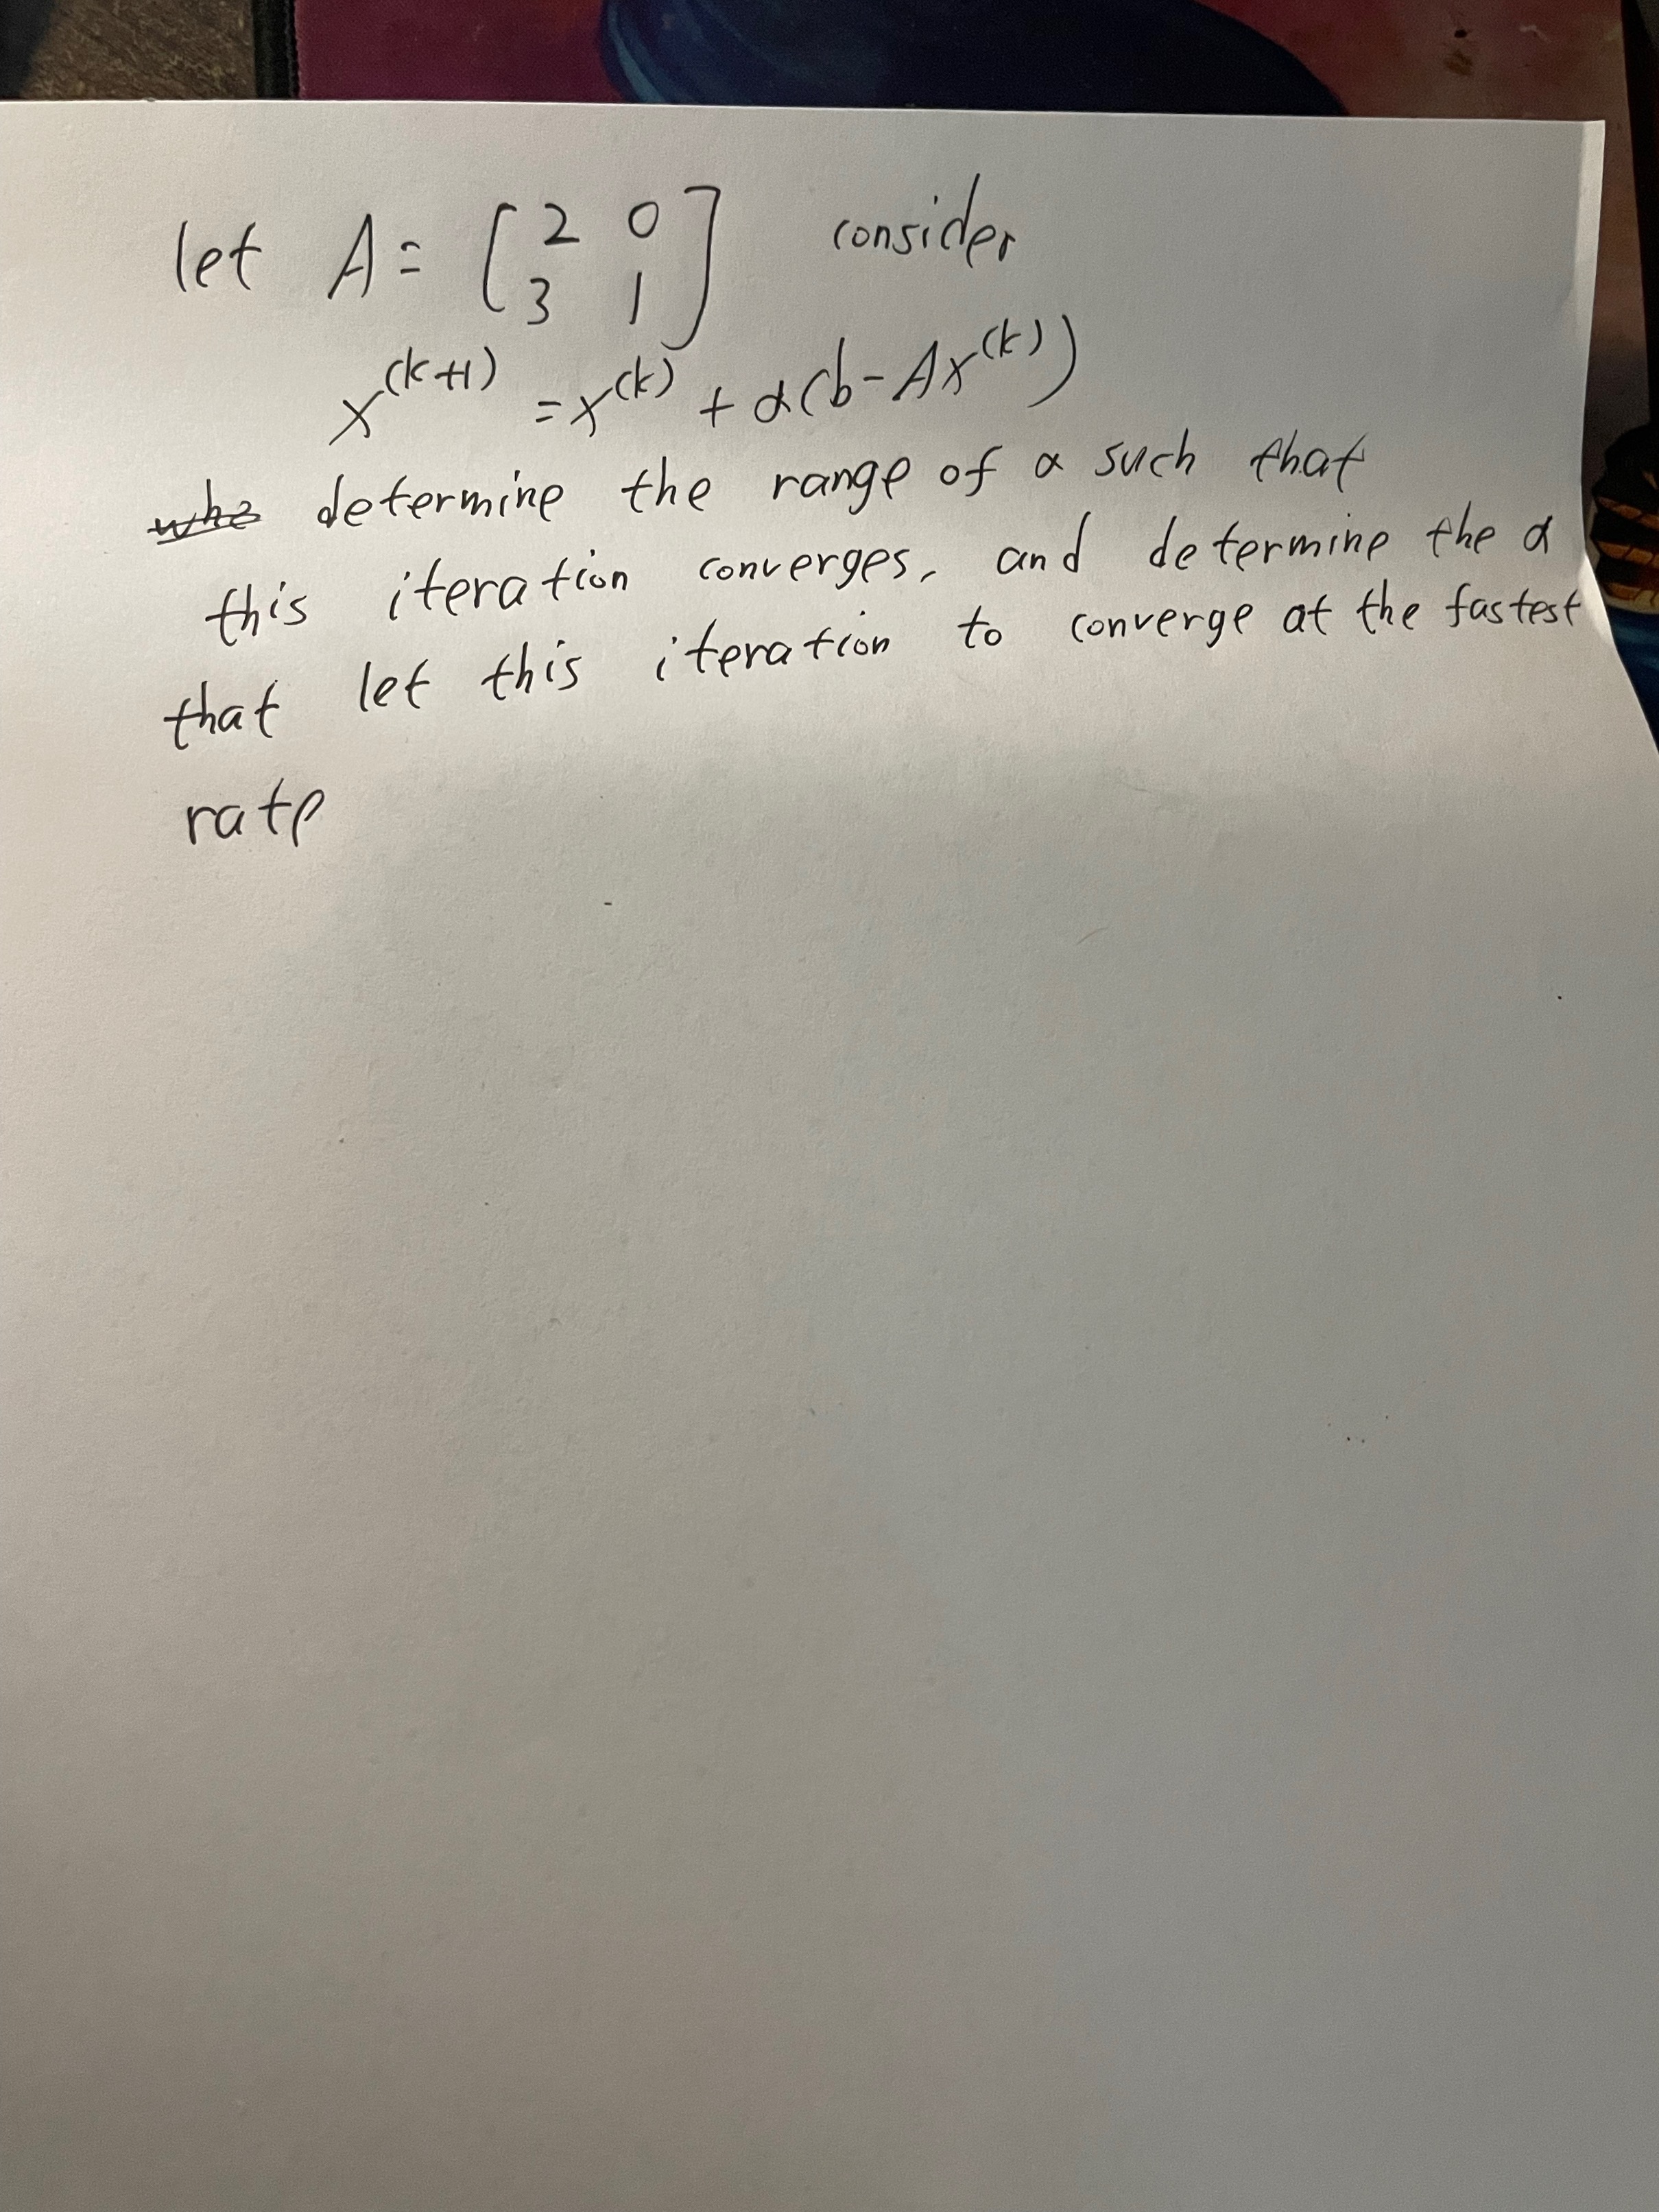 let A = [2 0
3 1] consider
x^(k+1) = x^(k) + α(b - Ax^(k))
whe determine the range of α such that
this iteration converges, and determine the α
that let this iteration to converge at the fastest
rate